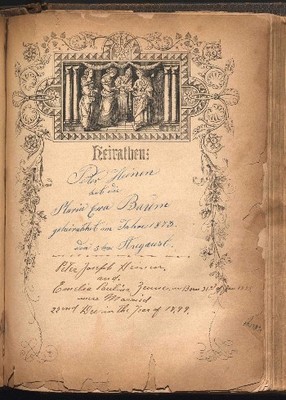 Heirathen:
Peter Heinen
hat die
Maria Eva Baren
geheirathet im Jahre 1873.
die 3ten August.
Peter Joseph Heinen,
and
Emelia Paulina Born 31st of
were Married
22nd Dec in the Year of 1899.